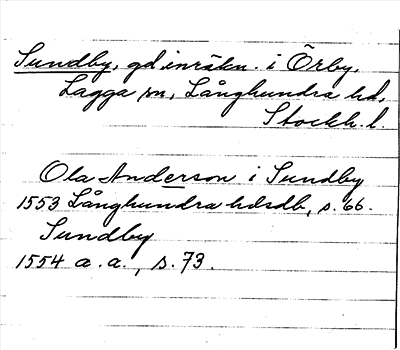 Sundby, gd inräkn. i Örby,
Lagga sn, Långhundra hd,
Stockh. l.
Ola Anderson i Sundby
1553 Långhundra hdsdb, s. 66.
Sundby
1554 a. a., s. 73.